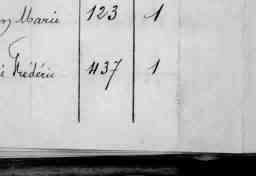 Marie 123 1
Frédéric 437 1